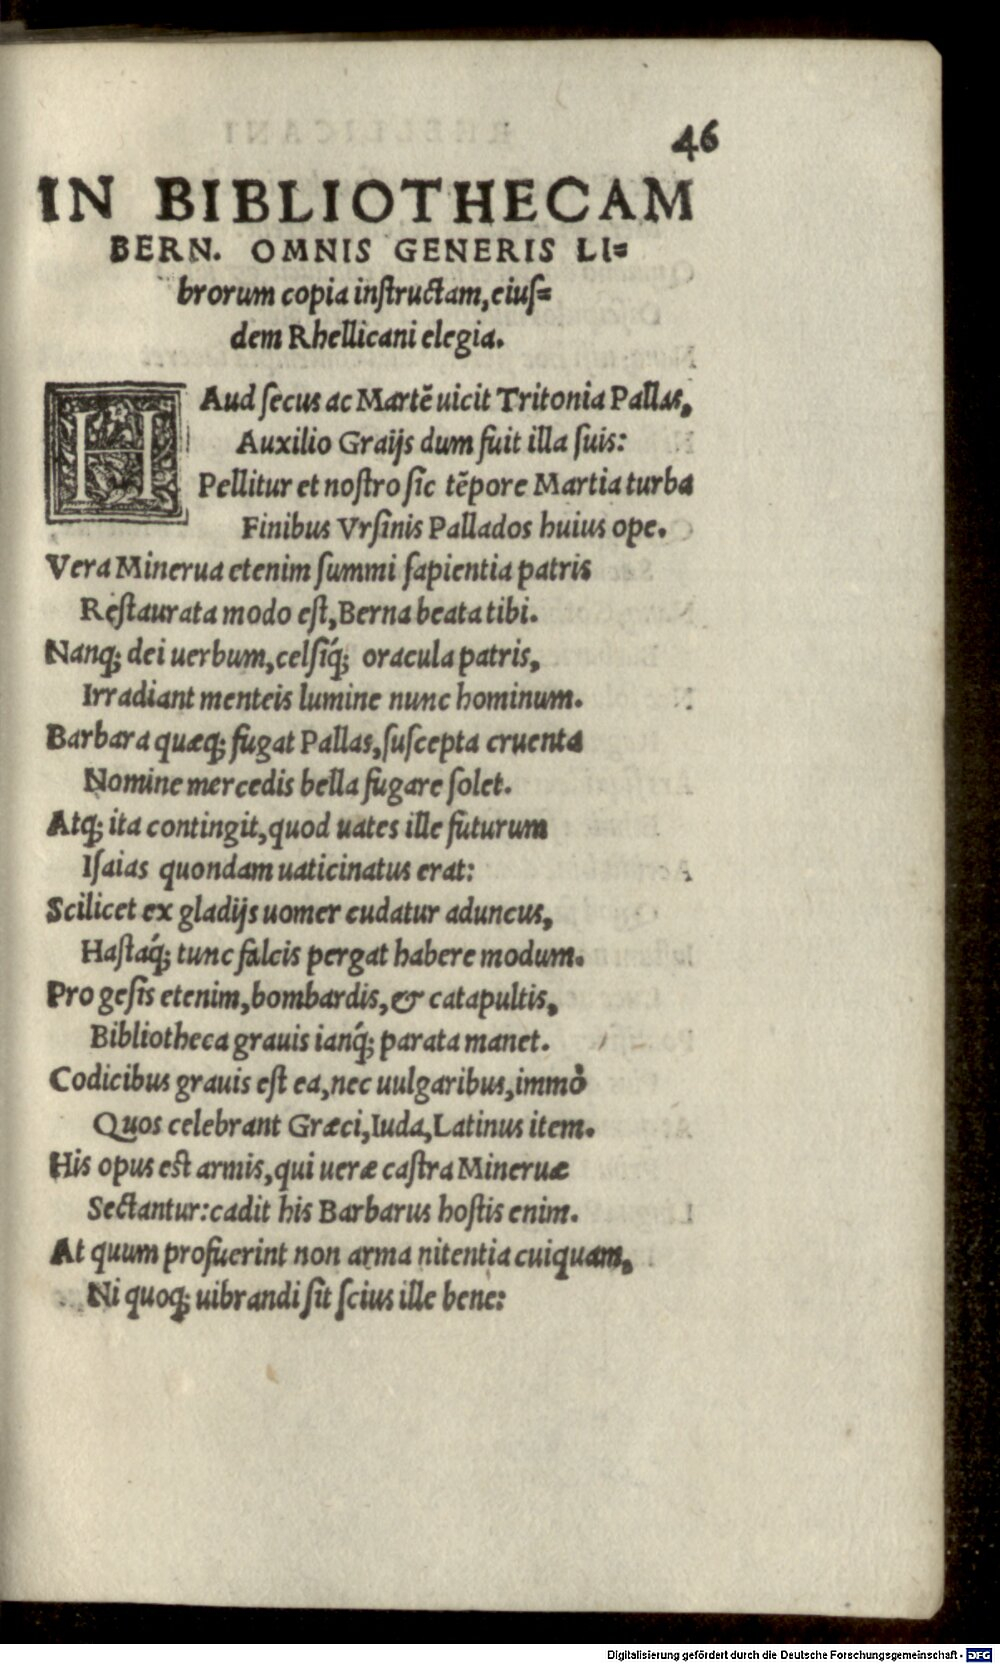 46
IN BIBLIOTHECAM
BERN. OMNIS GENERIS LI=
brorum copia instructam, eius=
dem Rhellicani elegia.
HAud secus ac Martē uicit Tritonia Pallas,
Auxilio Graijs dum fuit illa suis:
Pellitur et nostro sic tēpore Martia turba
Finibus Vrsinis Pallados huius ope.
Vera Minerua etenim summi sapientia patris
Restaurata modo est, Berna beata tibi.
Nanq; dei uerbum, celsiq́; oracula patris,
Irradiant menteis lumine nunc hominum.
Barbara quæq; fugat Pallas, suscepta cruenta
Nomine mercedis bella fugare solet.
Atq; ita contingit, quod uates ille futurum
Isaias quondam uaticinatus erat:
Scilicet ex gladijs uomer cudatur aduncus,
Hastaq́; tunc falcis pergat habere modum.
Pro gesis etenim, bombardis, & catapultis,
Bibliotheca grauis ianq́; parata manet.
Codicibus grauis est ea, nec uulgaribus, immò
Quos celebrant Græci, Iuda, Latinus item.
His opus est armis, qui ueræ castra Mineruæ
Sectantur: cadit his Barbarus hostis enim.
At quum profuerint non arma nitentia cuiquam,
Ni quoq; uibrandi sit scius ille bene:
Digitalisierung gefördert durch die Deutsche Forschungsgemeinschaft - DFG